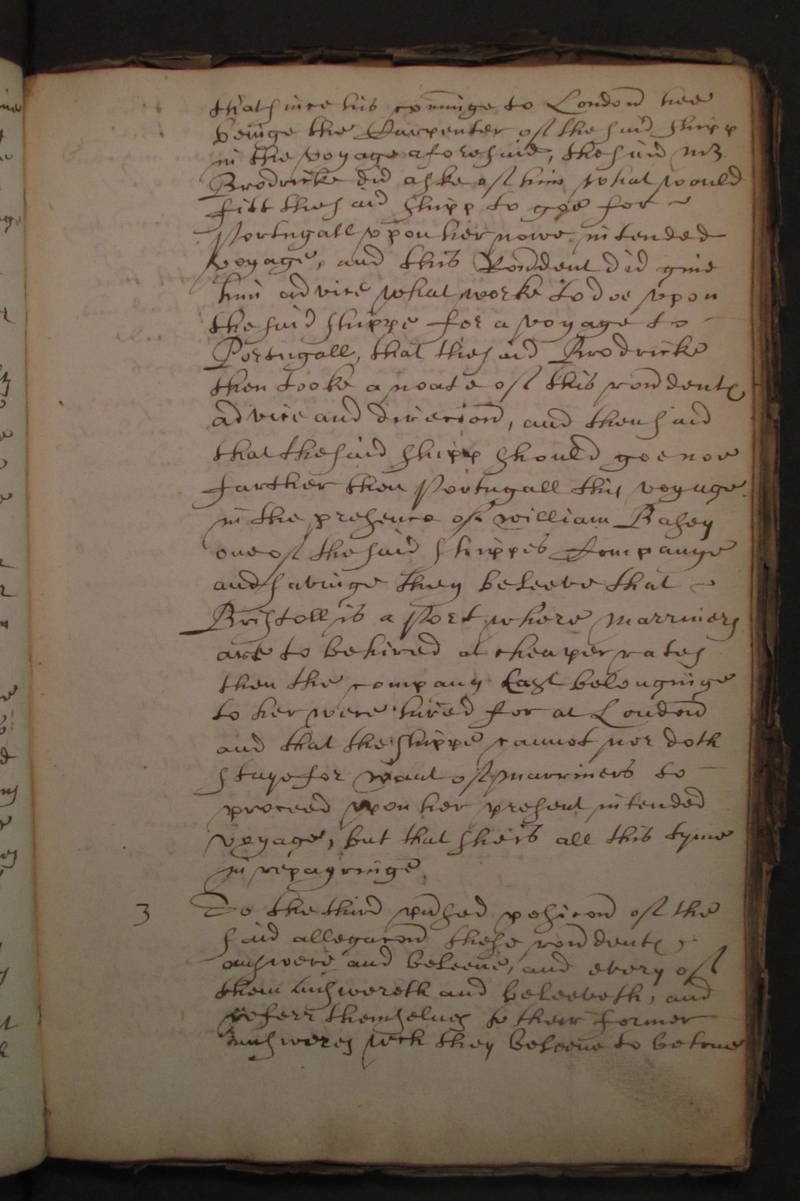 that since his comminge to London hee
beinge the Carpenter of the said shipp
in the voyage aforesaid, the said mr
Brodricke did aske of him what would
fitt the said shipp to goe for
Portugall vpon her nowe intended
voyage, and this Rondent did giue
him advice what worke to doe vpon
the said shippe for a voyage to
Portugall, that the said Brodricke
then tooke a noate of this rondents
advice and direcion, and then said
that the said shipp should goe noe
farther then Portugall this voyage
in the presence of William Basey
one of the said shippes Companye
and sayinge they beleeve that
Bristoll is a Port where marriners
are to be hired at cheaper rates
then the company last belonginge
to her were hired for at London
and that the shippe cannot nor doth
staye for want of marriners to
proceed vpon her present intended
voyage, but that she is all this tyme
in repayringe.
3 To the third pnsed posicon of the
said allegacon these rondents
answere and beleeue, and every of
them answereth and beleeveth, and
referr themselues to their former
answeres wch they beleeue to be true